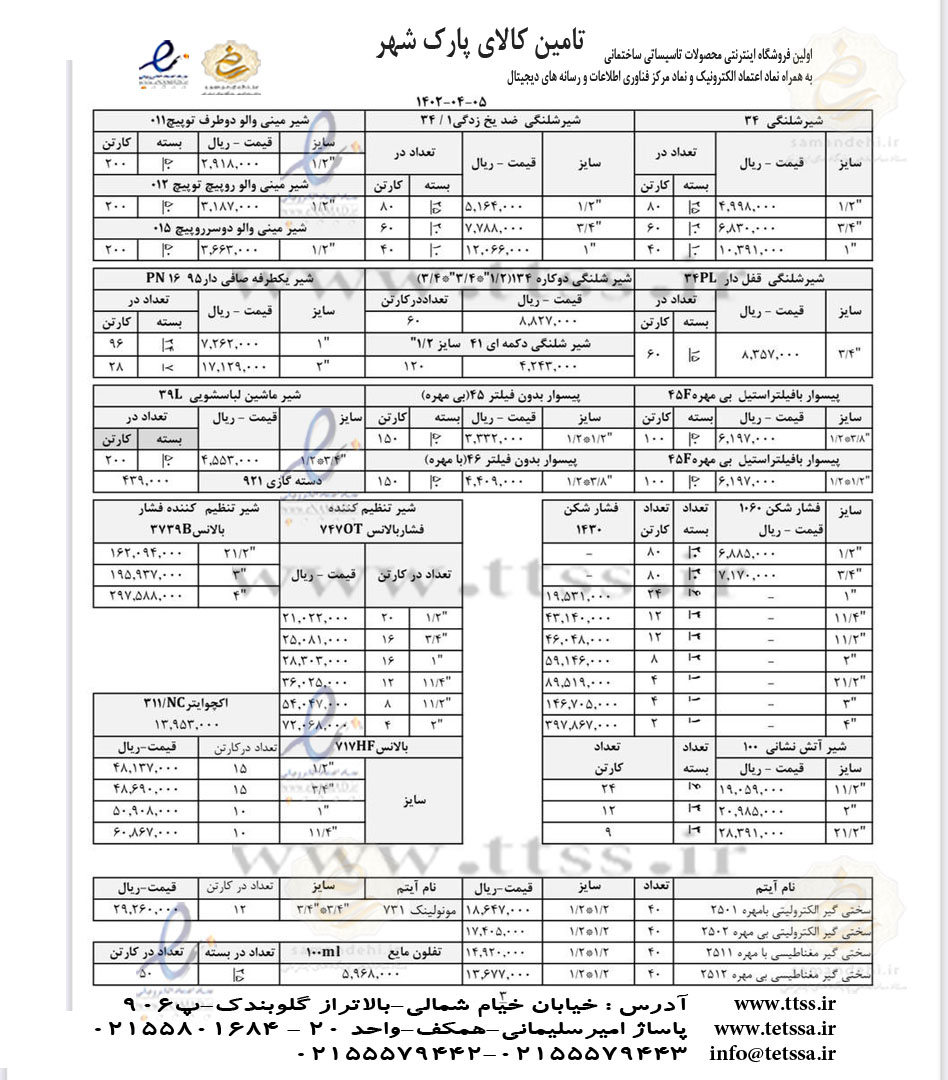 تامین کالای پارک شهر
اولین فروشگاه اینترنتی محصولات تاسیساتی ساختمانی
به همراه نماد اعتماد الکترونیک و نماد مرکز فناوری اطلاعات و رسانه های دیجیتال
۱۴۰۲-۰۴-۰۵
شیرشلنگی ۳۴ شیرشلنگی ضد یخ زدگی ۳۴/۱ شیر مینی والو دوطرف توپیچ۰۱۱
سایز قیمت - ریال تعداد در سایز قیمت - ریال تعداد در سایز قیمت - ریال بسته کارتن
۱/۲" ۲,۹۱۸,۰۰۰ ۲۰۰
بسته کارتن بسته کارتن شیر مینی والو روپیچ توپیچ ۰۱۲
۱/۲" ۴,۹۹۸,۰۰۰ ۸۰ ۱/۲" ۵,۱۶۴,۰۰۰ ۸۰ ۱/۲" ۳,۱۸۷,۰۰۰ ۲۰۰
۳/۴" ۶,۸۳۰,۰۰۰ ۶۰ ۳/۴" ۷,۷۸۸,۰۰۰ ۶۰ شیر مینی والو دوسرروپیچ ۰۱۵
۱" ۱۰,۳۹۱,۰۰۰ ۴۰ ۱" ۱۲,۰۶۶,۰۰۰ ۴۰ ۱/۲" ۳,۶۶۳,۰۰۰ ۲۰۰
شیرشلنگی قفل دار ۳۴PL شیر شلنگی دوکاره ۱۳۴(۱/۲"*۳/۴"*۳/۴) شیر یکطرفه صافی دار۹۵ PN ۱۶
سایز قیمت - ریال تعداد در قیمت - ریال تعداددرکارتن سایز قیمت - ریال تعداد در
بسته کارتن ۸,۸۲۷,۰۰۰ ۶۰ بسته کارتن
۳/۴" ۸,۳۵۷,۰۰۰ ۶۰ شیر شلنگی دکمه ای ۴۱ سایز ۱/۲" ۱" ۷,۲۶۲,۰۰۰ ۹۶
۴,۲۴۳,۰۰۰ ۱۲۰ ۲" ۱۷,۱۲۹,۰۰۰ ۲۸
پیسوار بافیلتراستیل بی مهره۴۵F پیسوار بدون فیلتر ۴۵(بی مهره) شیر ماشین لباسشویی ۳۹L
سایز قیمت - ریال بسته کارتن سایز قیمت - ریال بسته کارتن سایز قیمت - ریال تعداد در
۱/۲*۳/۸" ۶,۱۹۷,۰۰۰ ۱۰۰ ۱/۲*۱/۲" ۳,۳۳۲,۰۰۰ ۱۵۰ بسته کارتن
پیسوار بافیلتراستیل بی مهره۴۵F پیسوار بدون فیلتر ۴۶(با مهره) ۱/۲*۳/۴" ۴,۵۵۳,۰۰۰ ۲۰۰
۱/۲*۱/۲" ۶,۱۹۷,۰۰۰ ۱۰۰ ۱/۲*۳/۸" ۴,۴۰۹,۰۰۰ ۱۵۰ دسته گازی ۹۲۱ ۴۳۹,۰۰۰
سایز فشار شکن ۱۰۶۰ تعداد تعداد فشار شکن شیر تنظیم کننده شیر تنظیم کننده فشار
قیمت - ریال بسته کارتن ۱۴۳۰ فشاربالانس ۷۴۷OT بالانس۳۷۳۹B
۱/۲" ۶,۸۸۵,۰۰۰ ۸۰ - تعداد در کارتن قیمت - ریال ۲۱/۲" ۱۶۲,۰۹۴,۰۰۰
۳/۴" ۷,۱۷۰,۰۰۰ ۸۰ - ۳" ۱۹۵,۹۳۷,۰۰۰
۱" - ۲۴ ۱۹,۵۳۱,۰۰۰ ۴" ۲۹۷,۵۸۸,۰۰۰
۱۱/۴" - ۱۲ ۴۳,۱۴۰,۰۰۰ ۱/۲" ۲۰ ۲۱,۰۲۲,۰۰۰
۱۱/۲" - ۱۲ ۴۶,۰۴۸,۰۰۰ ۳/۴" ۱۶ ۲۵,۰۸۱,۰۰۰
۲" - ۸ ۵۹,۱۴۶,۰۰۰ ۱" ۱۶ ۲۸,۳۰۳,۰۰۰
۲۱/۲" - ۴ ۸۹,۵۱۹,۰۰۰ ۱۱/۴" ۱۲ ۳۶,۰۲۵,۰۰۰
۳" - ۴ ۱۴۶,۷۰۵,۰۰۰ ۱۱/۲" ۸ ۵۴,۰۴۷,۰۰۰ اکچوایتر۳۱۱/NC
۴" - ۲ ۳۹۷,۸۶۷,۰۰۰ ۲" ۴ ۷۲,۰۶۸,۰۰۰ ۱۳,۹۵۳,۰۰۰
شیر آتش نشانی ۱۰۰ تعداد تعداد بالانس۷۱۷HF تعداد درکارتن قیمت-ریال
سایز قیمت - ریال بسته کارتن سایز ۱/۲" ۱۵ ۴۸,۱۳۷,۰۰۰
۱۱/۲" ۱۹,۰۵۹,۰۰۰ ۲۴ ۳/۴" ۱۵ ۴۸,۶۹۰,۰۰۰
۲" ۲۰,۹۸۵,۰۰۰ ۱۲ ۱" ۱۰ ۵۰,۹۰۸,۰۰۰
۲۱/۲" ۲۸,۳۹۱,۰۰۰ ۹ ۱۱/۴" ۱۰ ۶۰,۸۶۷,۰۰۰
www.ttss.ir
نام آیتم تعداد سایز قیمت-ریال نام آیتم سایز تعداد در کارتن قیمت-ریال
سختی گیر الکترولیتی بامهره ۲۵۰۱ ۴۰ ۱/۲*۱/۲ ۱۸,۶۴۷,۰۰۰ مونولینک ۷۳۱ ۳/۴"*۳/۴" ۱۲ ۲۹,۲۶۰,۰۰۰
سختی گیر الکترولیتی بی مهره ۲۵۰۲ ۴۰ ۱/۲*۱/۲ ۱۷,۴۰۵,۰۰۰
سختی گیر مغناطیسی با مهره ۲۵۱۱ ۴۰ ۱/۲*۱/۲ ۱۴,۹۲۰,۰۰۰ تفلون مایع ۱۰۰ml تعداد در بسته تعداد در کارتن
سختی گیر مغناطیسی بی مهره ۲۵۱۲ ۴۰ ۱/۲*۱/۲ ۱۳,۶۷۷,۰۰۰ ۵,۹۶۸,۰۰۰ ۵۰
۳
www.ttss.ir آدرس : خیابان خیام شمالی-بالاتراز گلوبندک-پ۹۰۶
www.tetssa.ir پاساژ امیرسلیمانی-همکف-واحد ۲۰ - ۰۲۱۵۵۸۰۱۶۸۴
info@tetssa.ir ۰۲۱۵۵۵۷۹۴۴۲-۰۲۱۵۵۵۷۹۴۴۳